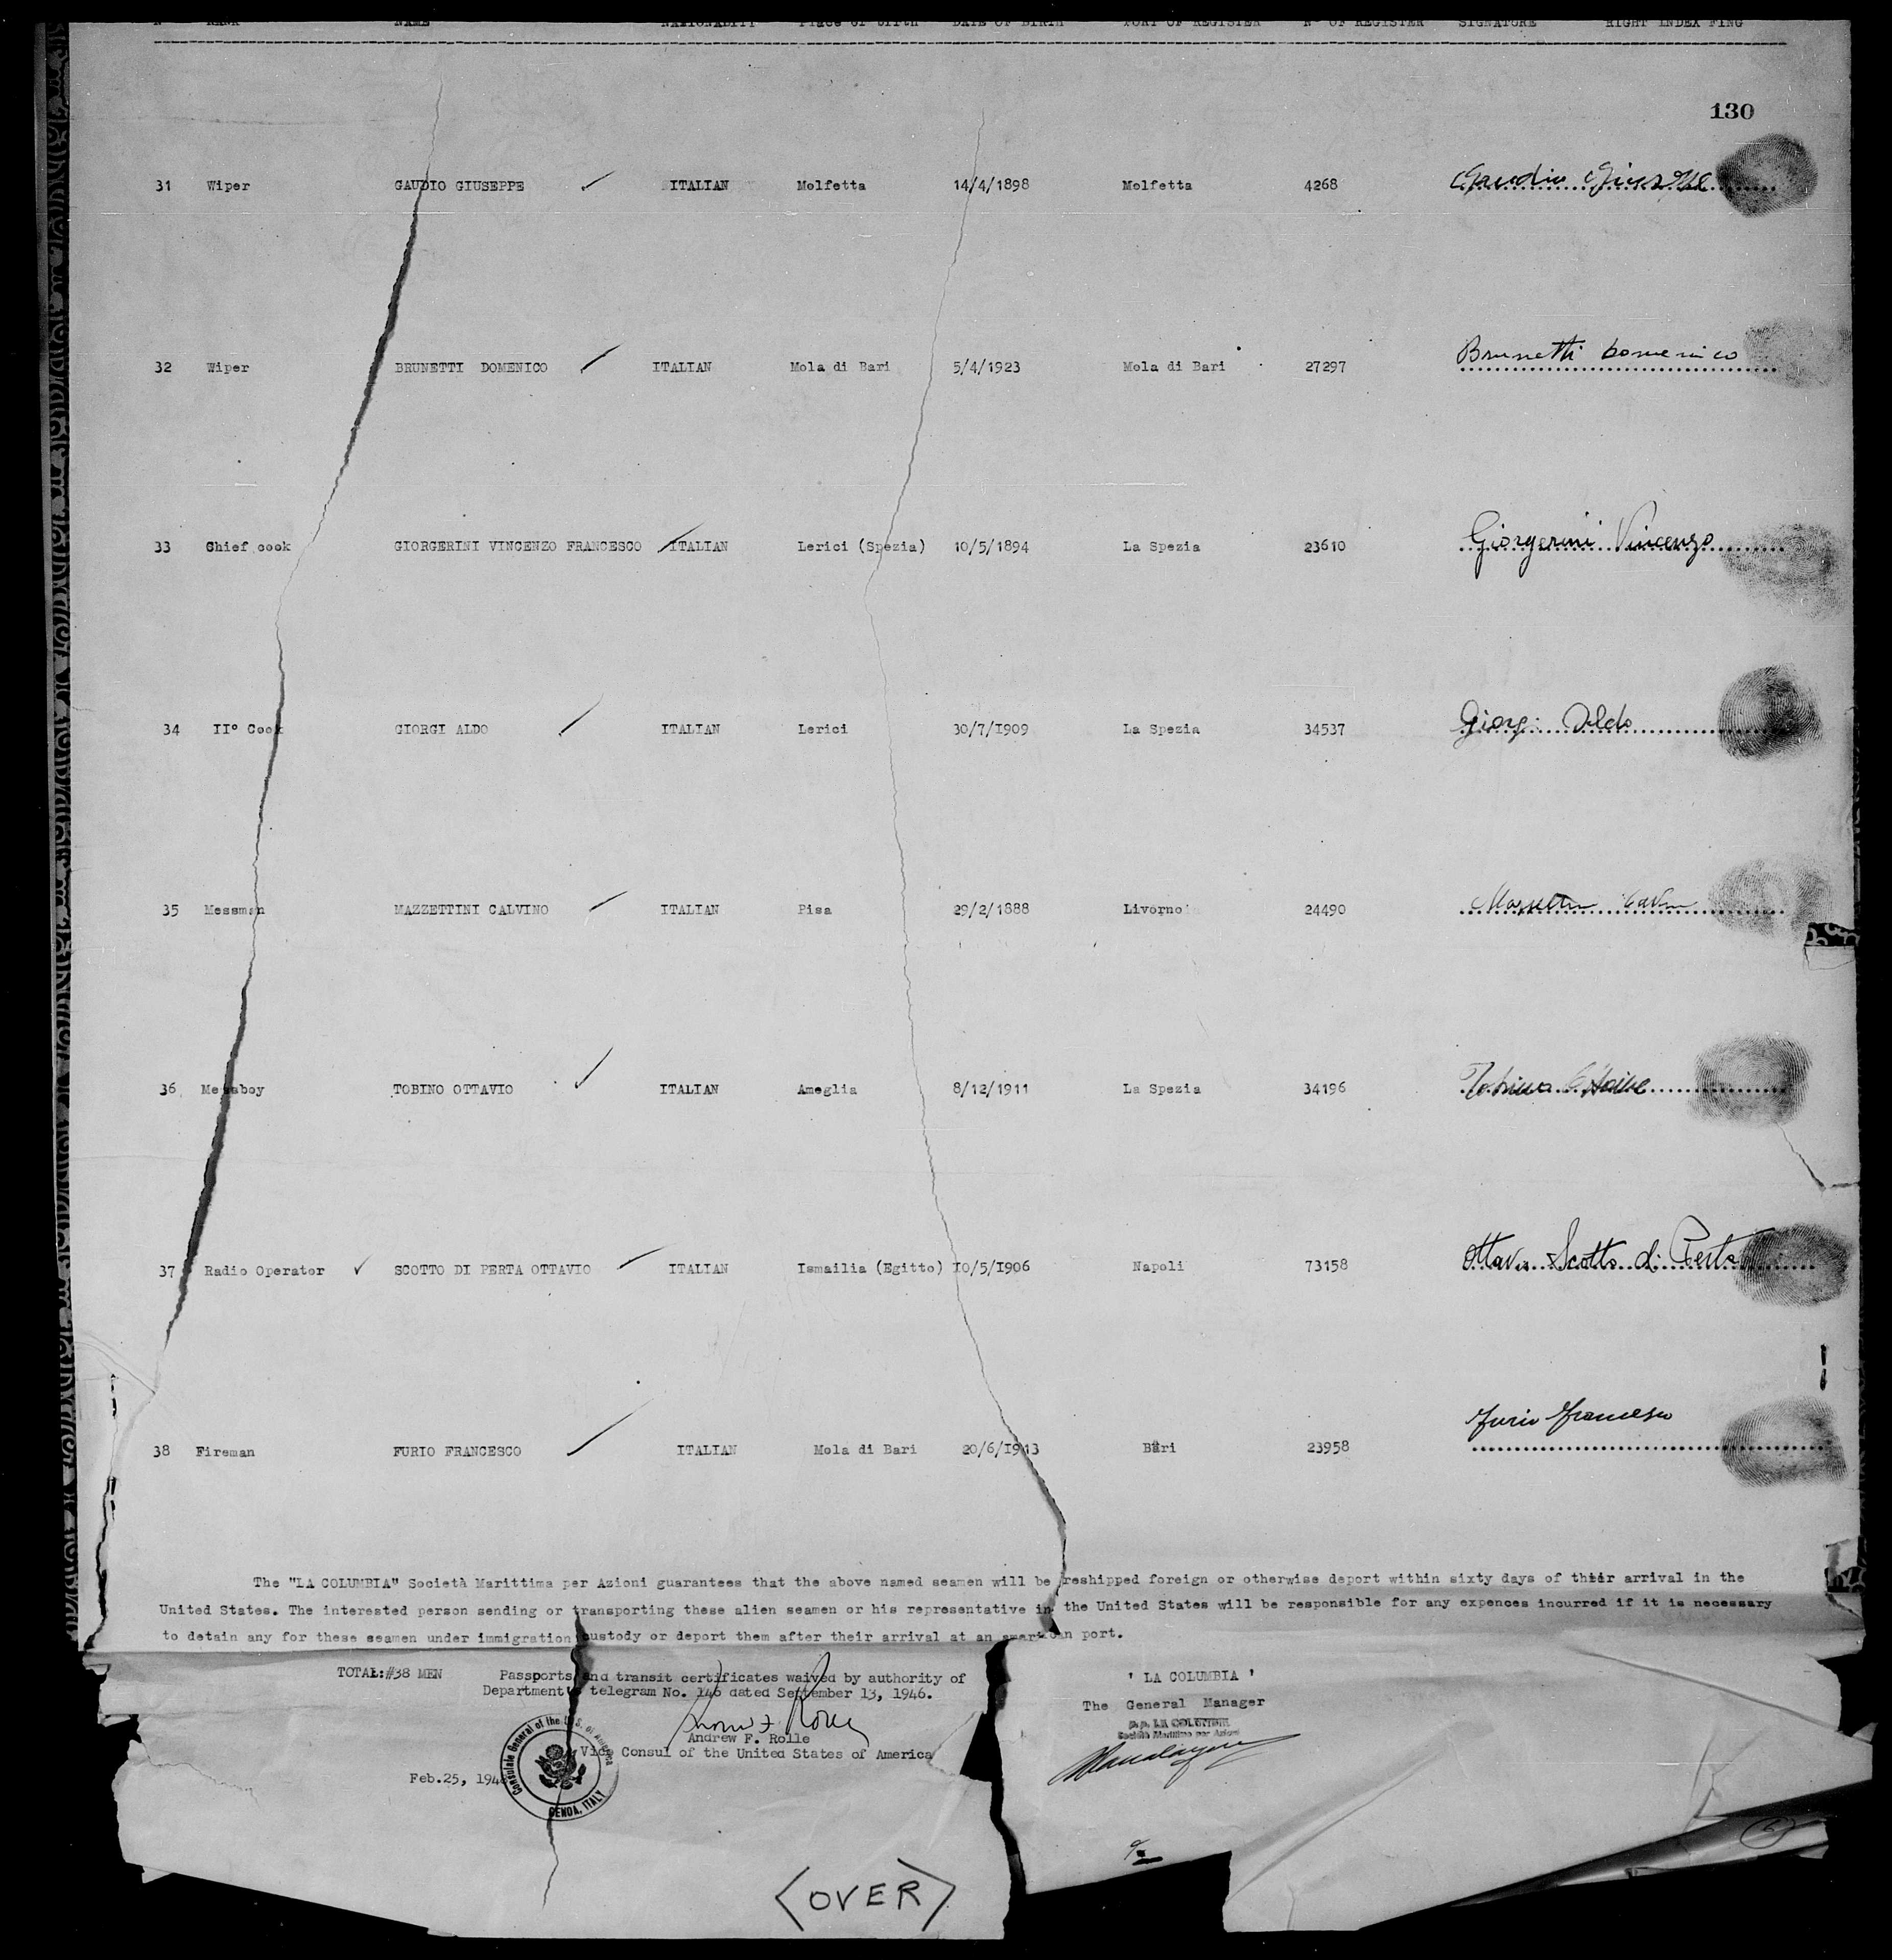 N° RANK NAME NAZIONALITY Place of birth DATE OF BIRTH PORT OF REGISTER N° OF REGISTER SIGNATORE RIGHT INDEX FING
130
31 Wiper GAUDIO GIUSEPPE ITALIAN Molfetta 14/4/1898 Molfetta 4268 Gaudio Giuseppe
32 Wiper BRUNETTI DOMENICO ITALIAN Mola di Bari 5/4/1923 Mola di Bari 27297 Brunetti Domenico
33 Chief cook GIORGERINI VINCENZO FRANCESCO ITALIAN Lerici (Spezia) 10/5/1894 La Spezia 23610 Giorgerini Vincenzo
34 II° Cook GIORGI ALDO ITALIAN Lerici 30/7/1909 La Spezia 34537 Giorgi Aldo
35 Messman MAZZETTINI CALVINO ITALIAN Pisa 29/2/1888 Livorno 24490
36 Messboy TOBINO OTTAVIO ITALIAN Ameglia 8/12/1911 La Spezia 34196 Tobino Ottavio
37 Radio Operator SCOTTO DI PERTA OTTAVIO ITALIAN Ismailia (Egitto) 10/5/1906 Napoli 73158 Ottavio Scotto di Perta
38 Fireman FURIO FRANCESCO ITALIAN Mola di Bari 20/6/1913 Bari 23958 Furio Francesco
The "LA COLUMBIA" Società Marittima per Azioni guarantees that the above named seamen will be reshipped foreign or otherwise deport within sixty days of their arrival in the
United States. The interested person sending or transporting these alien seamen or his representative in the United States will be responsible for any expences incurred if it is necessary
to detain any for these seamen under immigration custody or deport them after their arrival at an american port.
TOTAL:#38 MEN
Passports and transit certificates waived by authority of
Department's telegram No. 146 dated September 13, 1946.
Andrew F. Rolle
Vice Consul of the United States of America
Feb.25, 194
Consulate General of the U.S. of America
GENOA, ITALY
' LA COLUMBIA '
The General Manager
p.p. LA COLUMBIA
Società Marittima per Azioni
<OVER>